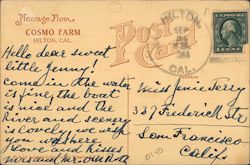 Message From
COSMO FARM
HILTON, CAL.
Post Card
HILTON
SEP
CAL.
Hello dear sweet
little Jenny!
come in the water
is fine, the boat
is nice and the
River and scenery
is lovely, we wish
you was here
love and kisses
Miss Jenie Jerry
337 Frederick St
San Francisco
Calif